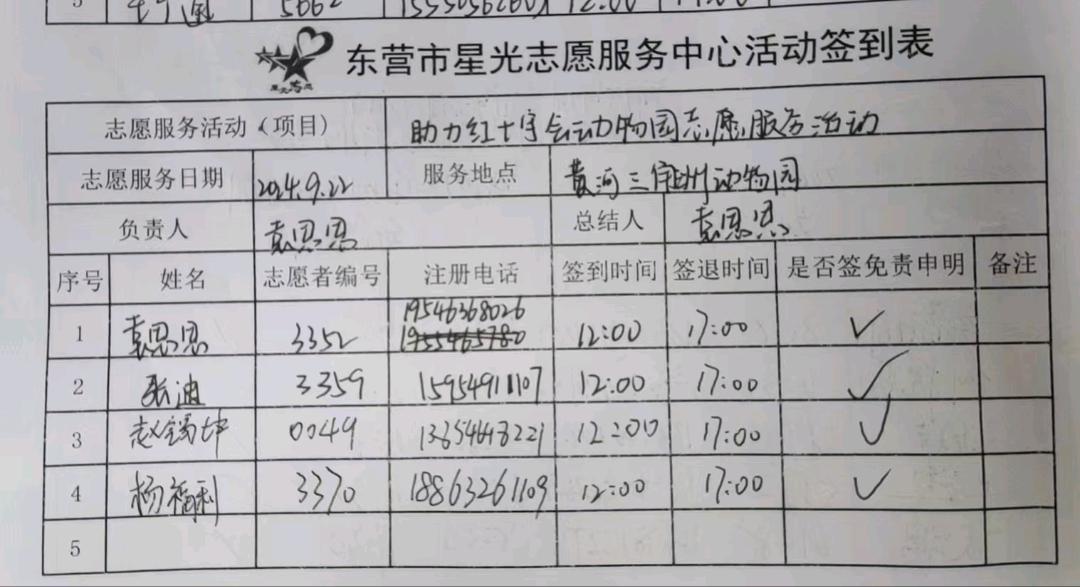 3 5662 12:00
东营市星光志愿服务中心活动签到表
志愿服务活动（项目） 助力红十字会动物园志愿服务活动
志愿服务日期 2024.9.22 服务地点 黄河三角洲动物园
负责人 袁思思 总结人 袁思思
序号 姓名 志愿者编号 注册电话 签到时间 签退时间 是否签免责申明 备注
19546368026
1 袁思思 3352 19555465780 12:00 17:00 ✓
2 张迪 3359 15954911107 12:00 17:00 ✓
3 赵锡坤 0049 13654648221 12:00 17:00 ✓
4 杨福利 3370 18863261109 12:00 17:00 ✓
5